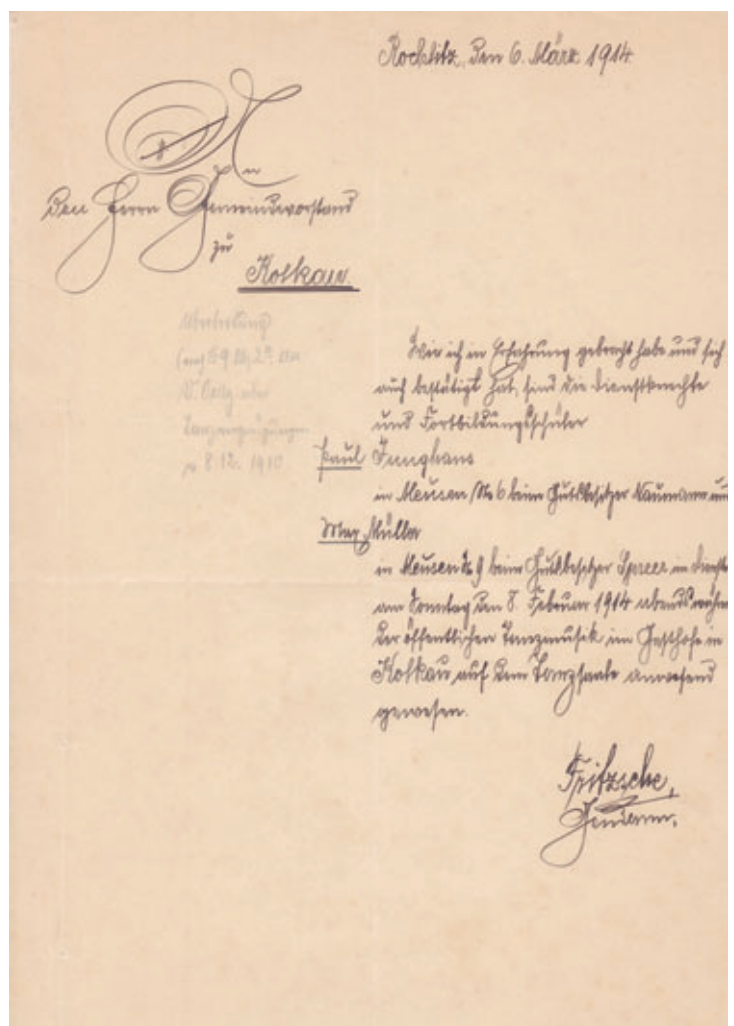 Rochlitz, den 6. März 1914.
An
den Herrn Gemeindevorstand
zu
Kolkau
Übertretung
§ 9 Abs. 2
Tanzvergnügungen
8. 12. 1910
Wie ich in Erfahrung gebracht habe und sich
auch bestätigt hat, sind die Dienstknechte
und Fortbildungsschüler
Paul Junghans
in Meusen No 6 beim Gutsbesitzer Naumann und
Max Müller
in Meusen No 9 beim Gutsbesitzer in Dienste
am Sonntag den 8. Februar 1914 abends
der öffentlichen Tanzmusik im Gasthofe in
Kolkau auf dem Tanzsaale anwesend
gewesen.
Fritzsche,
Gendarm.